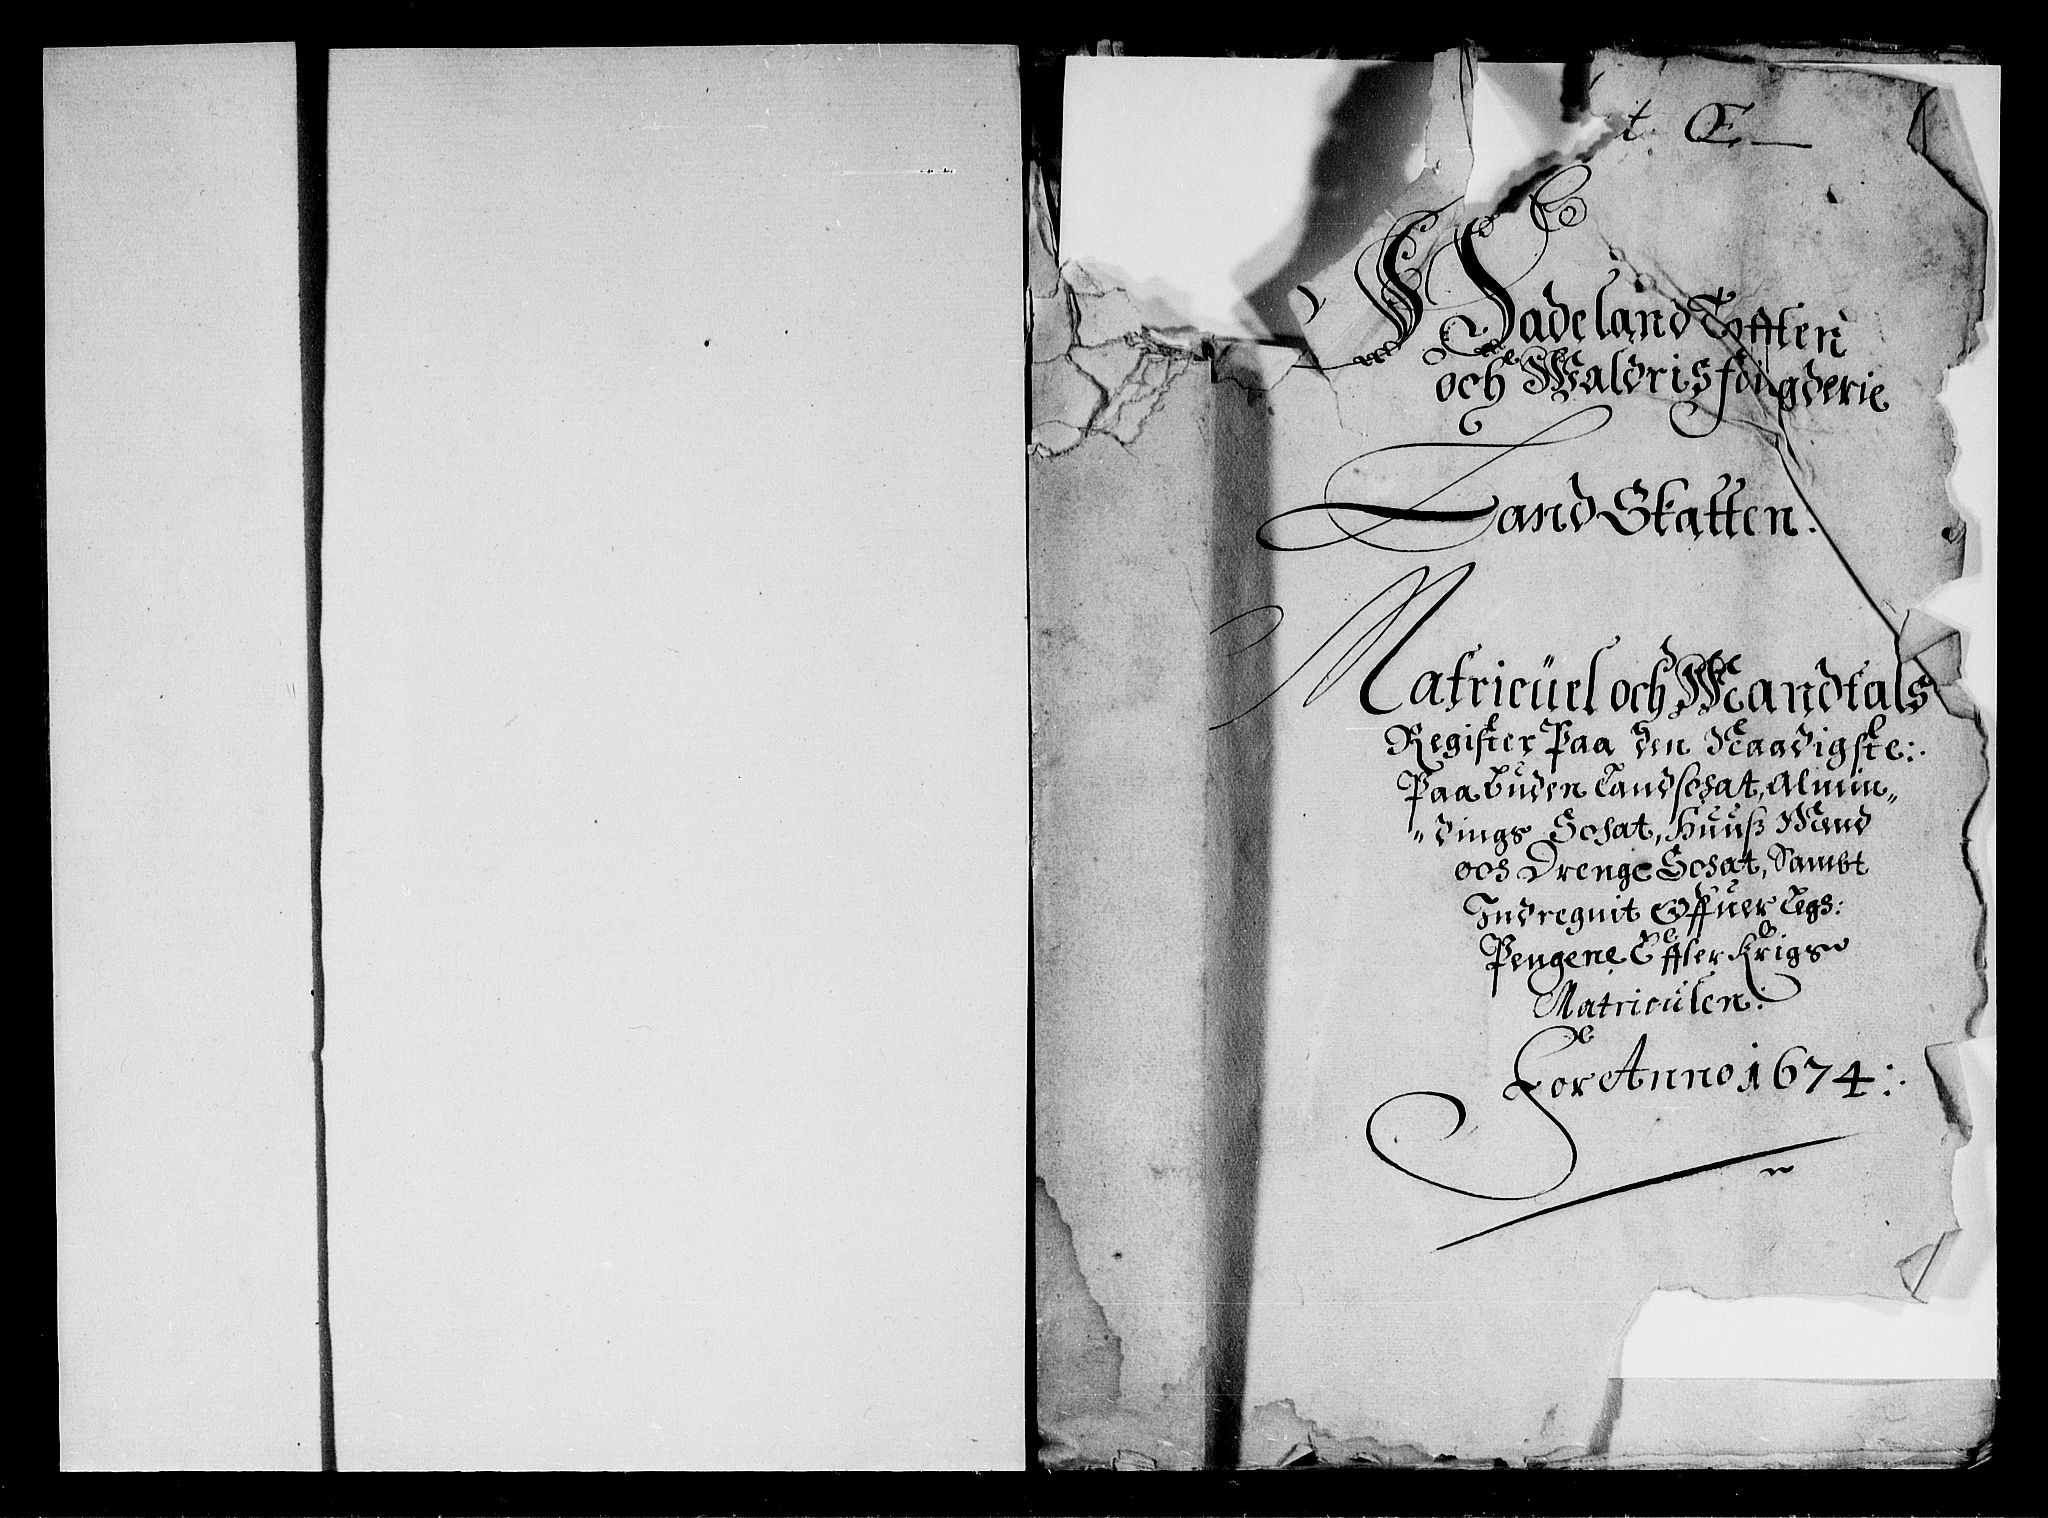 t. E
Hadeland Tofften
och Waldris fougderie
Landskatten.
Matricuel och Mandtals
Register Paa den Naadigste:
Paabuden Landschat, Almin„
„dings Schat, Huuß Mænd
och Drenge Schat, Sambt
Indregnit Offuer Legs:
Pengene Effter Krigs
Matriculen:
For Anno 1674: